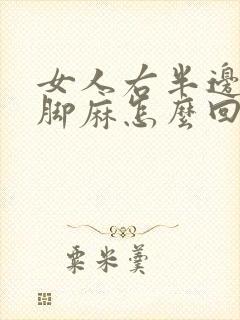 女人右半邊
脚麻怎麼回
粟米羹